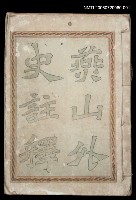 燕山外
史註釋